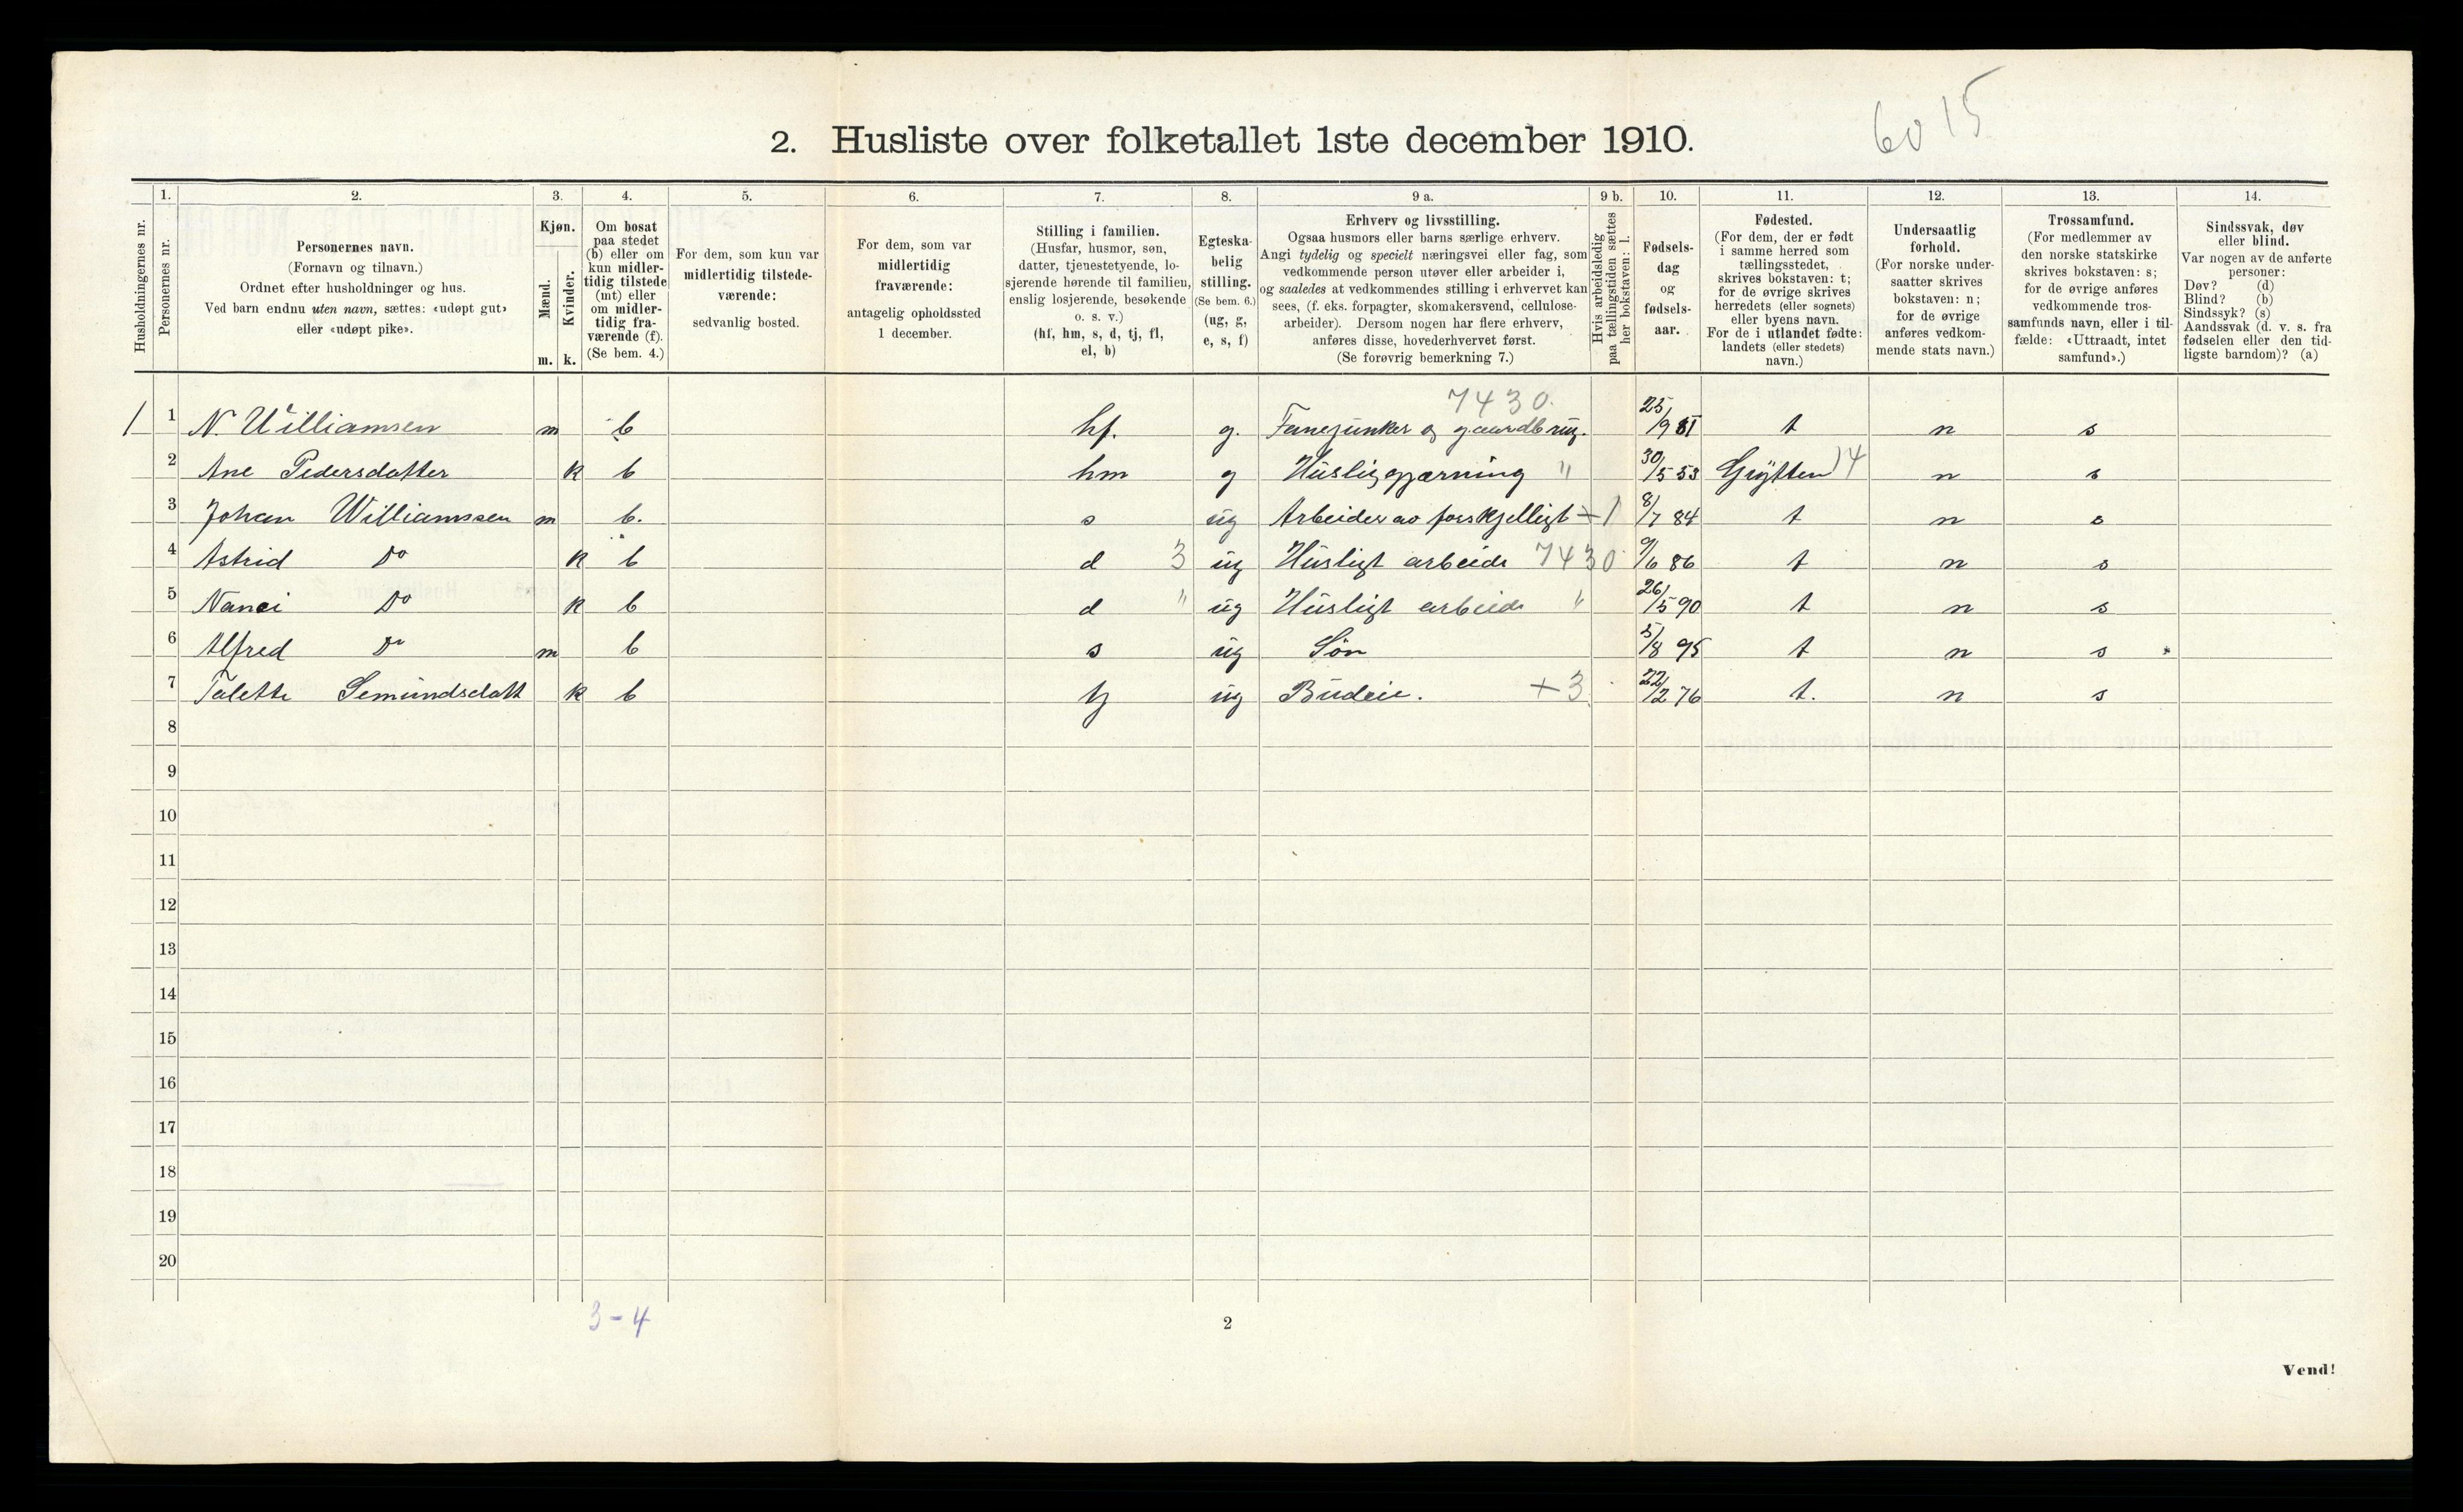 60 15
2. Husliste over folketallet 1ste december 1910.
Husholdningernes nr.
1. Personernes nr.
2. Personernes navn.
(Fornavn og tilnavn.)
Ordnet efter husholdninger og hus.
Ved barn endnu uten navn, sættes: «udøpt gut»
eller «udøpt pike».
3. Kjøn.
Mænd. m.
Kvinder. k.
4. Om bosat
paa stedet
(b) eller om
kun midler-
tidig tilstede
(mt) eller
om midler-
tidig fra-
værende (f).
(Se bem. 4.)
5. For dem, som kun var
midlertidig tilstede-
værende:
sedvanlig bosted.
6. For dem, som var
midlertidig
fraværende:
antagelig opholdssted
1 december.
7. Stilling i familien.
(Husfar, husmor, søn,
datter, tjenestetyende, lo-
sjerende hørende til familien,
enslig losjerende, besøkende
o. s. v.)
(hf, hm, s, d, tj, fl,
el, b)
8. Egteska-
belig
stilling.
(Se bem. 6.)
(ug, g,
e, s, f)
9 a. Erhverv og livsstilling.
Ogsaa husmors eller barns særlige erhverv.
Angi tydelig og specielt næringsvei eller fag, som
vedkommende person utøver eller arbeider i,
og saaledes at vedkommendes stilling i erhvervet kan
sees, (f. eks. forpagter, skomakersvend, cellulose-
arbeider). Dersom nogen har flere erhverv,
anføres disse, hovederhvervet først.
(Se forøvrig bemerkning 7.)
9 b. Hvis arbeidsledig
paa tællingstiden sættes
her bokstaven: l.
10. Fødsels-
dag
og
fødsels-
aar.
11. Fødested.
(For dem, der er født
i samme herred som
tællingsstedet,
skrives bokstaven: t;
for de øvrige skrives
herredets (eller sognets)
eller byens navn.
For de i utlandet fødte:
landets (eller stedets)
navn.)
12. Undersaatlig
forhold.
(For norske under-
saatter skrives
bokstaven: n;
for de øvrige
anføres vedkom-
mende stats navn.)
13. Trossamfund.
(For medlemmer av
den norske statskirke
skrives bokstaven: s;
for de øvrige anføres
vedkommende tros-
samfunds navn, eller i til-
fælde: «Uttraadt, intet
samfund».)
14. Sindssvak, døv
eller blind.
Var nogen av de anførte
personer:
Døv? (d)
Blind? (b)
Sindssyk? (s)
Aandssvak (d. v. s. fra
fødselen eller den tid-
ligste barndom)? (a)
7430.
1 1 N. Williamsen m b hf. g. Fanejunker og gaardbrug. 25/9 51 t n s
2 Ane Pedersdatter k b hm g Husliggjærning " 30/5 53 Grytten 14 n s
3 Johan Williamssen m b. s ug Arbeider av forskjelligt +1 8/7 84 t n s
4 Astrid Do k b d 3 ug Husligt arbeide 7430 9/6 86 t n s
5 Nanci Do k b d " ug Husligt arbeide " 26/5 90 t n s
6 Alfred Do m b s ug Søn 5/8 95 t n s
7 Talette Semundsdatt k b tj ug Budeie. +3 22/2 76 t. n s
8
9
10
11
12
13
14
15
16
17
18
19
20
3-4
2
Vend!